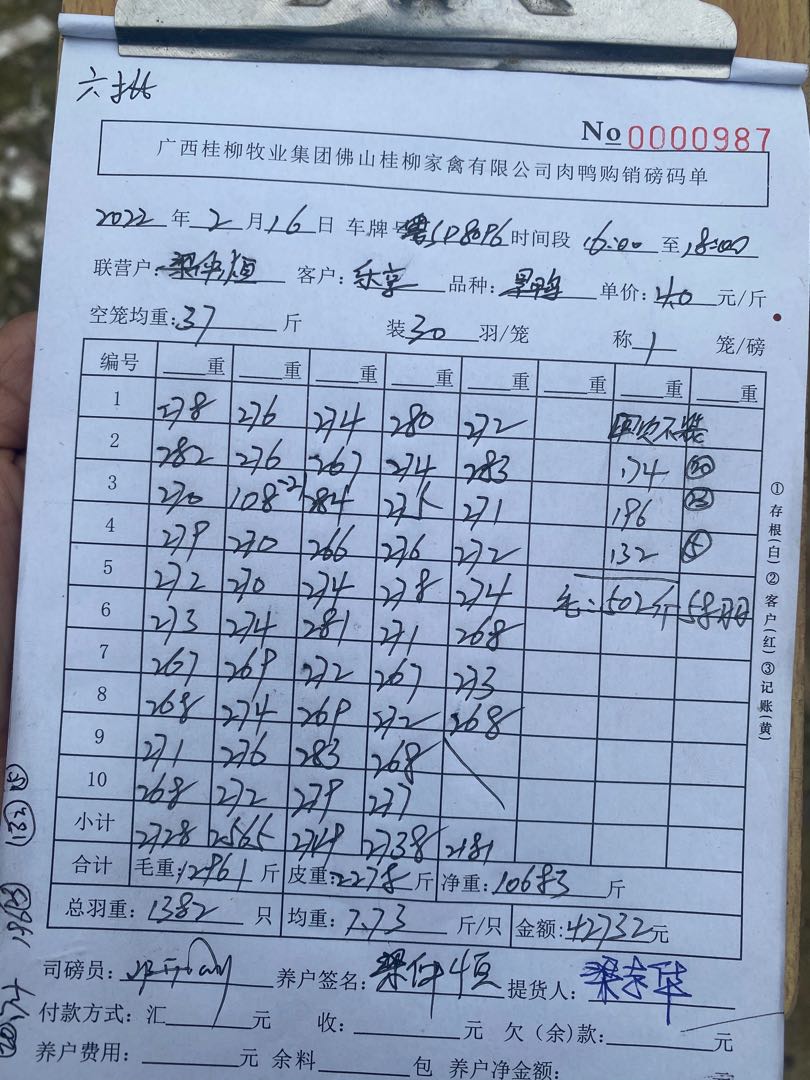 六批
No 0000987
广西桂柳牧业集团佛山桂柳家禽有限公司肉鸭购销磅码单
2022 年 2 月 16 日 车牌号 SD8096 时间段 16:00 至 18:00
联营户: 梁仲恒 客户: 乐享 品种: 黑鸭 单价: 4.0 元/斤
空笼均重: 37 斤 装 30 羽/笼 称 1 笼/磅
编号 重 重 重 重 重 重 重 重
1 278 276 274 280 272
2 282 276 267 274 283 174
3 270 108 -21 284 275 271 196
4 279 270 266 276 272 132
5 272 270 274 278 274 502斤 58
6 273 274 281 271 268
7 267 269 272 267 273
8 268 274 269 272 268
9 271 276 283 268
10 268 272 279 277
小计 2728 2565 2749 2738 2181
合计 毛重: 12961 斤 皮重: 2278 斤 净重: 10683 斤
总羽重: 1382 只 均重: 7.73 斤/只 金额: 42732 元
司磅员: 养户签名: 梁仲恒 提货人: 梁志华
付款方式: 汇 元 收: 元 欠(余)款: 元
养户费用: 元 余料 包 养户净金额: 元
①存根(白)②客户(红)③记账(黄)
132
196
174